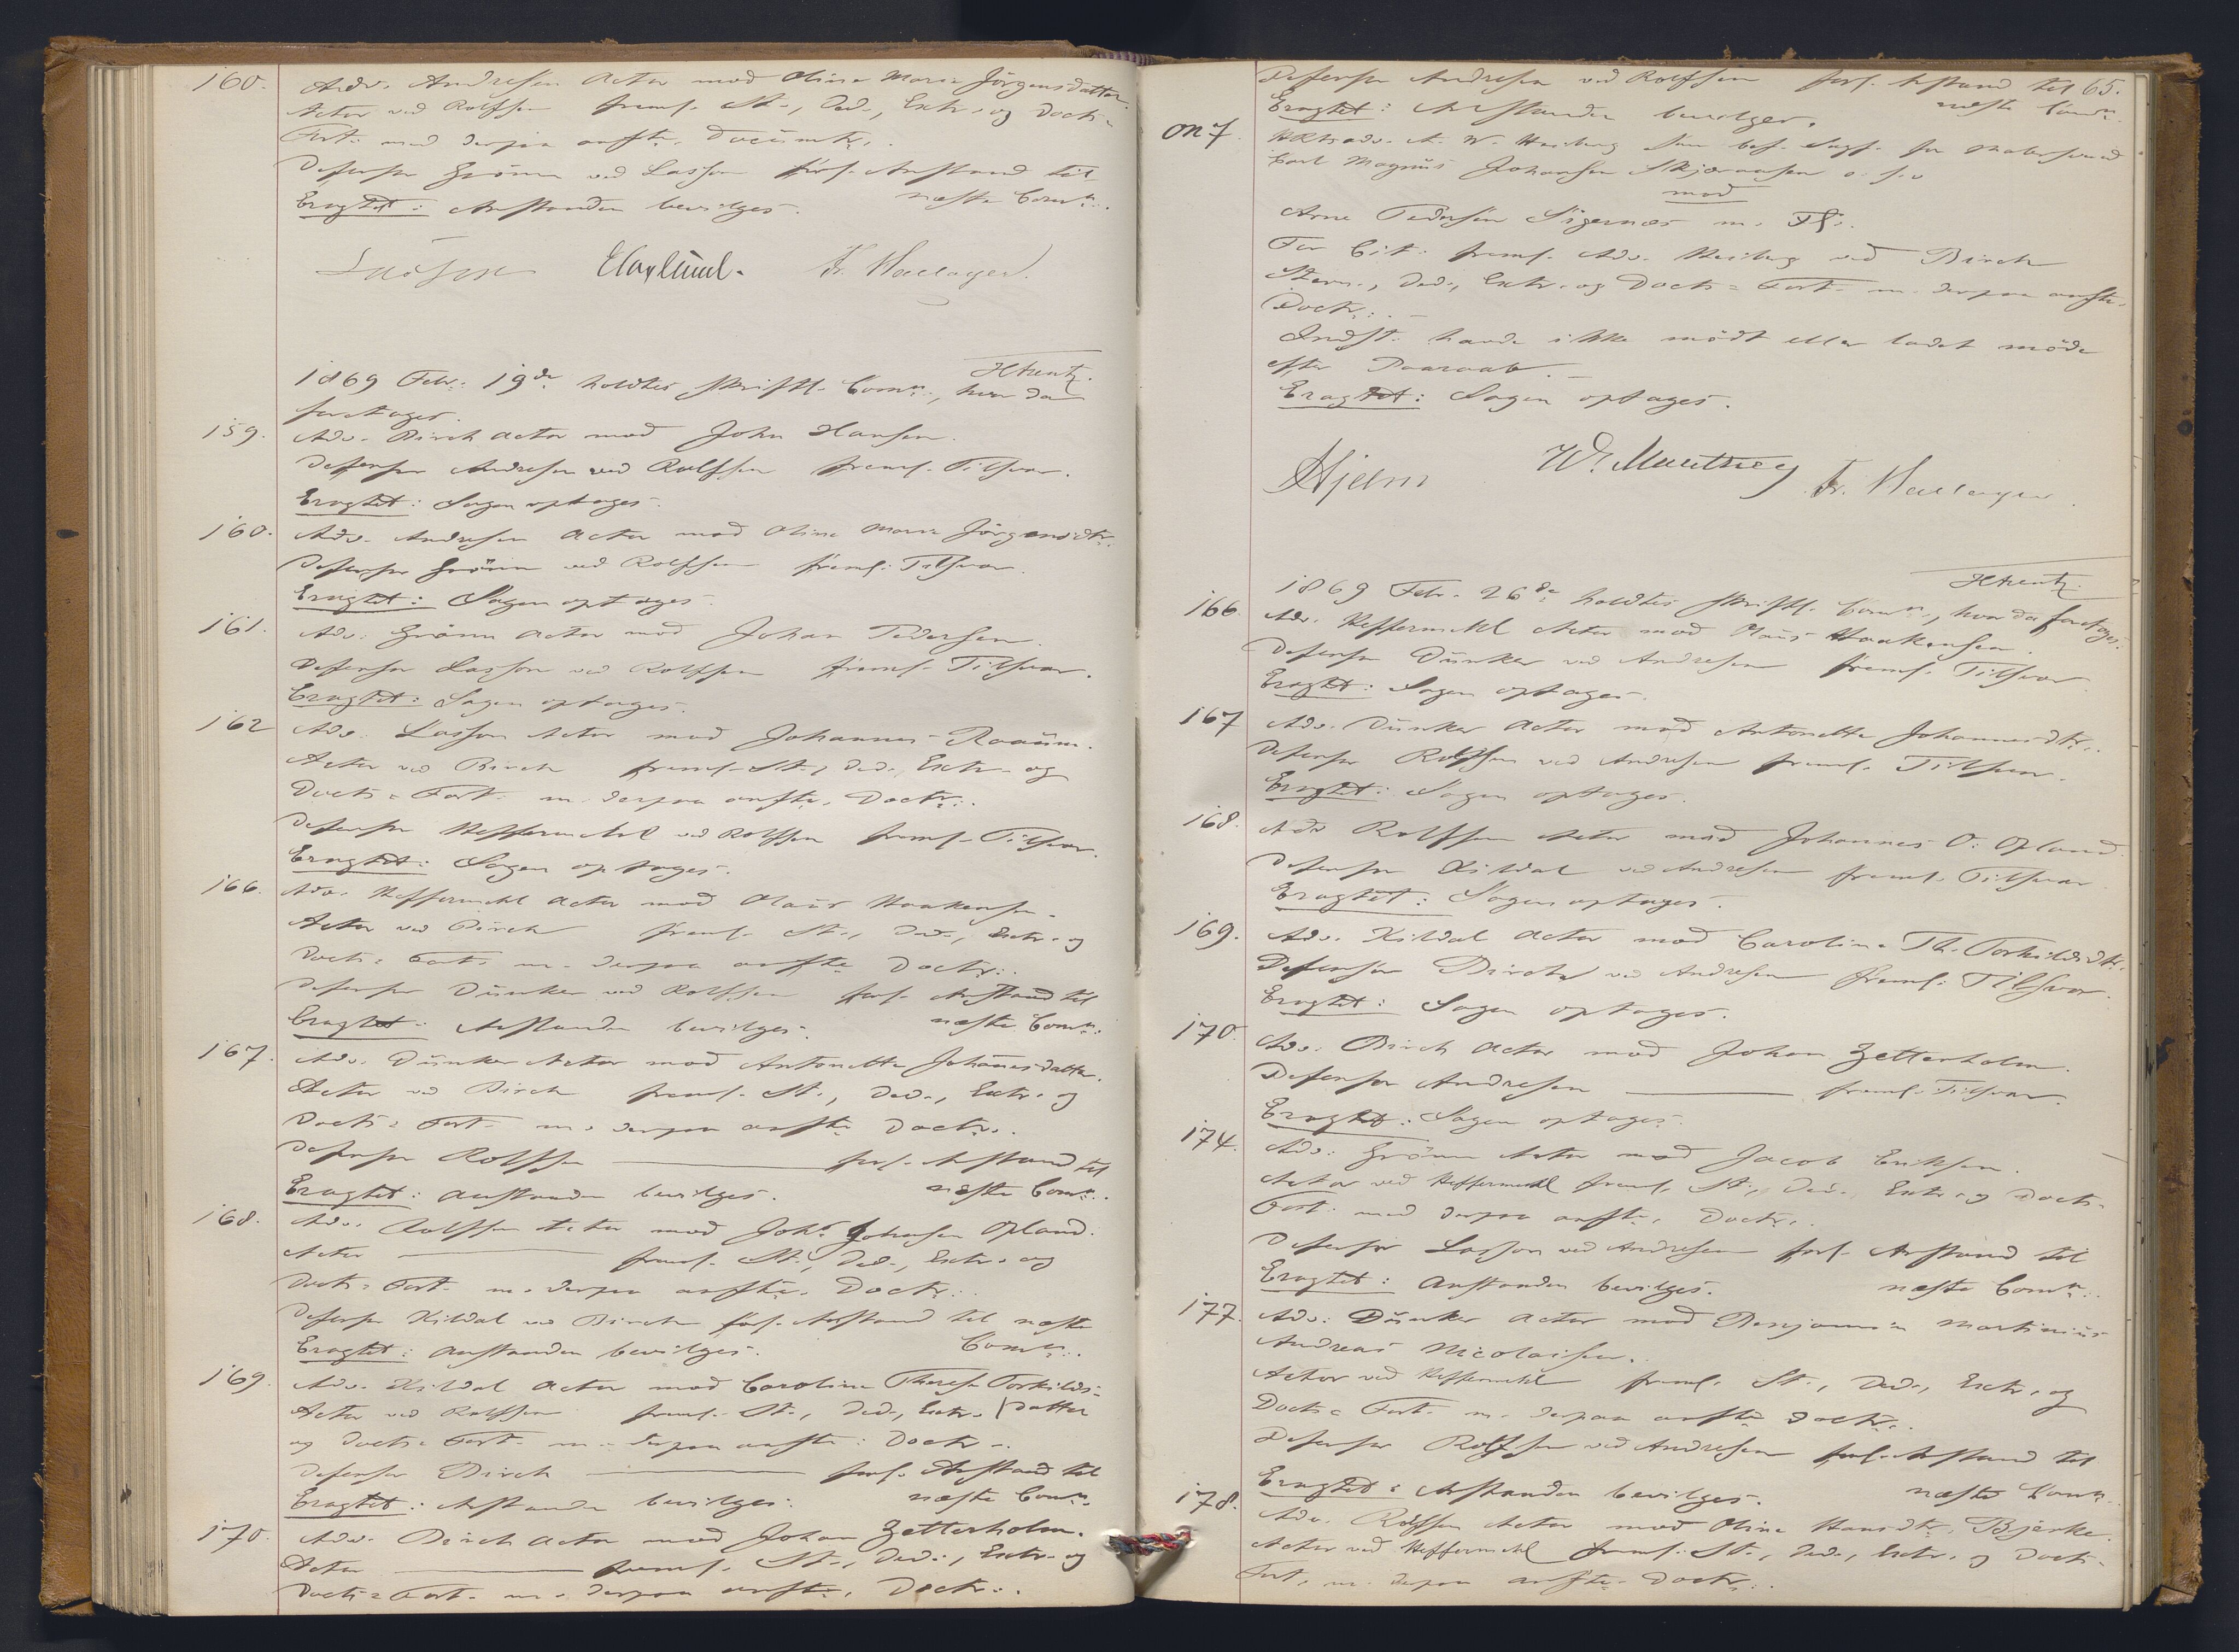 160. Adv. Andresen Actor mod Oline Marie Jörgensdatter.
Actor ved Rolfsen freml. St., Ded., Extr. og Doct:
Fort: med derpaa anfte. Documtr.
Defensor Grönn ved Lasson forl. Anstand til
Eragtet: Anstanden bevilges. næste Comn:.
Haslund. Fr. Hallager.
HKrentz.
1869 Febr. 19de holdtes skriftl. Comn:, hvor da
foretoges.
159. Adv. Birch Actor mod John Hansen.
Defensor Andresen ved Rolfsen freml. Tilsvar.
Eragtet: Sagen optages.
160. Adv. Andresen Actor mod Oline Marie Jörgensdtr.
Defensor Grönn ved Rolfsen freml. Tilsvar.
Eragtet: Sagen optages.
161. Adv. Grönn Actor mod Johan Pedersen.
Defensor Lasson ved Rolfsen freml. Tilsvar.
Eragtet: Sagen optages.
162 Adv. Lasson Actor mod Johannes Raaum.
Actor ved Birch freml. St., Ded., Extr. og
Doct: Fort. m. derpaa anfte. Doctr:.
Defensor Heffermehl ved Rolfsen freml. Tilsvar.
Eragtet: Sagen optages.
166. Adv. Heffermehl Actor mod Olaus Haakensen.
Actor ved Birch freml. St., Ded., Extr. og
Doct: Fort. m. derpaa anfte Doctr:.
Defensor Dunker ved Rolfsen forl. Anstand til
Eragtet: Anstanden bevilges. næste Comn:
167. Adv. Dunker Actor mod Antonette Johannesdatter.
Actor ved Birch freml. St., Ded., Extr. og
Doct: Fort. m. derpaa anfte Doctr.
Defensor Rolfsen ——— forl. Anstand til
Eragtet: Anstanden bevilges. næste Comn:.
168. Adv. Rolfsen Actor mod Johs Johnsen Opland.
Actor ——— freml. St., Ded., Extr. og
Doct: Fort. m. derpaa anfte. Doctr:.
Defensor Kildal ved Birch forl. Anstand til næste
Eragtet: Anstanden bevilges. Comn:.
169. Adv. Kildal Actor mod Caroline Therese Torkilds-
Actor ved Rolfsen freml. St., Ded., Extr. (datter
og Doct: Fort. m. derpaa anfte: Doctr.
Defensor Birch ——— forl. Anstand til
Eragtet: Anstanden bevilges. næste Comn:.
170. Adv. Birch Actor mod Johan Zetterholm.
Actor ——— freml. St., Ded., Extr. og
Doct: Fort. m. derpaa anfte. Doctr:.
Defensor Andresen ved Rolfsen forl. Anstand til 65.
Eragtet: Anstanden bevilges. næste Comn:.
on 7. HRtsadv. A. W. Heiberg som bef. Sagf. for
Carl Magnus Johansen Skjæraasen o. s. v
mod
Arne Pedersen Sigernæs m. Fl:.
For Cit: freml. Adv. Heiberg ved Birch
Stevn., Ded., Extr. og Doct: Fort. m. derpaa anfte.
Doctr:.
Indst. havde ikke mödt eller ladet möde
efter Paaraab.
Eragtet: Sagen optages.
Hjelm W. Mauthey Fr. Hallager.
HKrentz.
1869 Febr. 26de holdtes skriftl. Comn:, hvor da foretoges.
166. Adv. Heffermehl Actor mod Olaus Haakensen.
Defensor Dunker ved Andresen freml. Tilsvar.
Eragtet: Sagen optages.
167 Adv. Dunker Actor mod Antonette Johannesdtr.
Defensor Rolfsen ved Andresen freml. Tilsvar.
Eragtet: Sagen optages.
168. Adv Rolfsen Actor mod Johannes O. Opland.
Defensor Kildal ved Andresen freml. Tilsvar
Eragtet: Sagen optages.
169. Adv. Kildal Actor mod Caroline Th. Torkildsdtr.
Defensor Birch ved Andresen freml. Tilsvar.
Eragtet: Sagen optages.
170. Adv. Birch Actor mod Johan Zetterholm.
Defensor Andresen ——— freml. Tilsvar.
Eragtet: Sagen optages.
174. Adv. Grönn Actor mod Jacob Eriksen.
Actor ved Heffermehl freml. St., Ded., Extr. og Doct:
Fort. med derpaa anfte. Doctr.
Defensor Lasson ved Andresen forl. Anstand til
Eragtet: Anstanden bevilges. næste Comn:.
177. Adv. Dunker Actor mod Benjamin Martinius
Andreas Nicolaisen.
Actor ved Heffermehl freml. St., Ded., Extr. og
Doct: Fort. m. derpaa anfte Doctr.
Defensor Rolfsen ved Andresen forl. Anstand til
Eragtet: Anstanden bevilges. næste Comn:.
178. Adv. Rolfsen Actor mod Oline Hansdtr. Bjerke.
Actor ved Heffermehl freml. St., Ded., Extr. og Doct:
Fort. m. derpaa anfte. Doctr:.